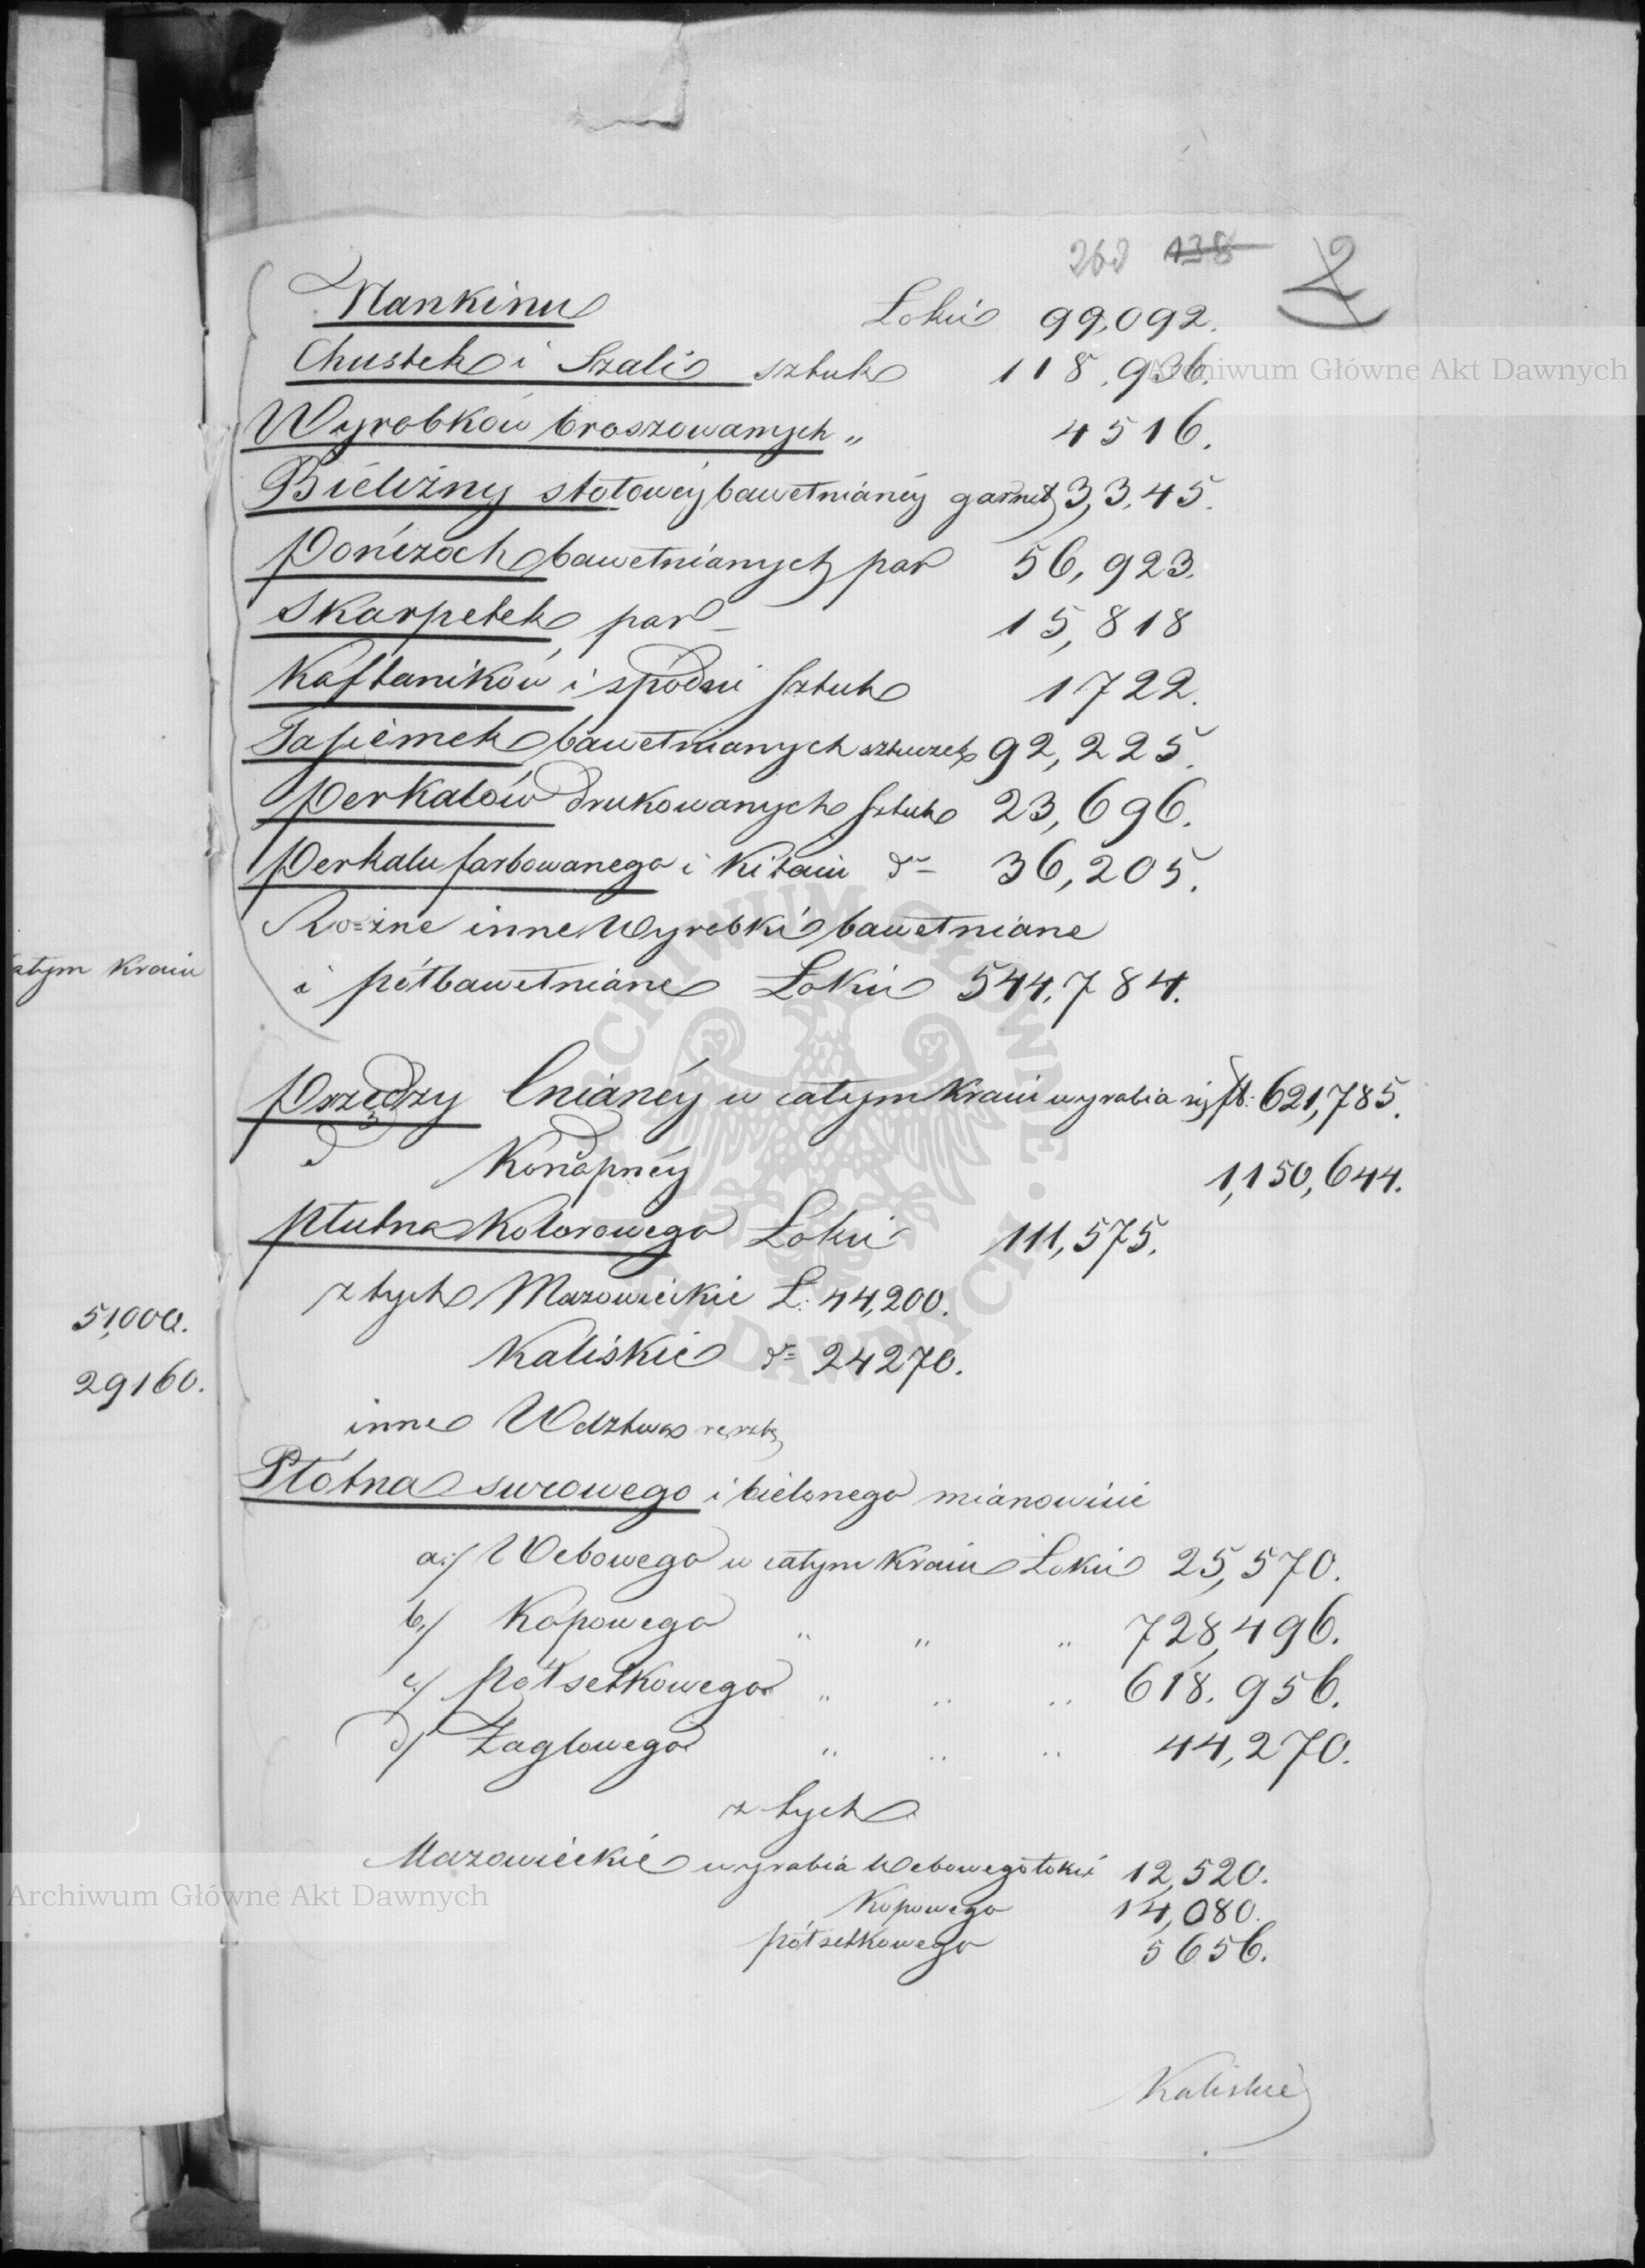 263 138 2
Nankinu Łokci 99,092.
Chustek i Szali sztuk 118,936.
Wyrobków broszowanych „ 4516.
Bielizny stołowéy bawełnianéy garnit 3,345.
Pończoch bawełnianych par 56,923.
Skarpetek par 15,818
Kaftaników i spódni sztuk 1722.
Tasiemek bawełnianych sztuczek 92,225.
Perkalów drukowanych sztuk 23,696.
Perkalu farbowanego i Kitaiu do 36,205.
Rożne inne Wyrobki bawełniane
i półbawełniane Łokci 544,784.
Przędzy lnianéy w całym Kraiu wyrabia się fb: 621,785.
d Konopnéy 1,150,644.
Płutna Kolorowego Łokci 111,575.
z tych Mazowieckie Ł: 44,200.
Kaliskie do 24270.
inne Wdztwa resztę
Płótna surowego i bielonego mianowicie
a:/ Webowego w całym Kraiu Łokci 25,570.
b,/ Kopowego „ „ „ 728,496.
c/ półsetkowego „ „ „ 618.956.
d/ Żaglowego „ „ „ 44,270.
z tych
Mazowieckie wyrabia Webowego łokci 12,520.
Kopowego 14,080.
półsetkowego 5656.
Kaliskie
ałym Kraiu
51,000.
29160.
Archiwum Główne Akt Dawnych
Archiwum Główne Akt Dawnych
ARCHIWUM GŁÓWNE AKT DAWNYCH